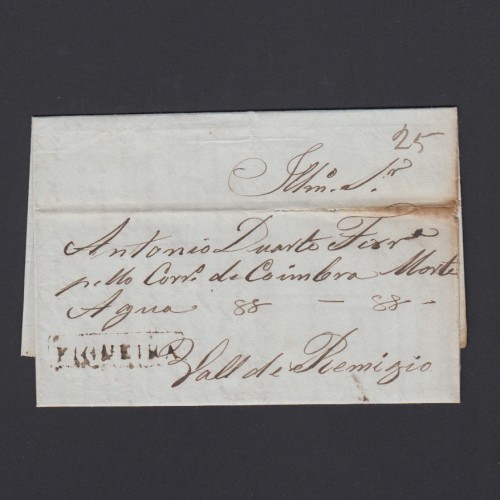 25
Illmo. Sr.
Antonio Duarte Ferra
pello Corro. de Coimbra Morte
Agua 88 — 88 -
FIGUEIRA
Vall de Remigio